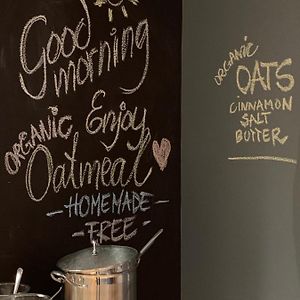 Good
morning
Enjoy
ORGANIC
Oatmeal
- HOMEMADE -
- FREE -
ORGANIC
OATS
CINNAMON
SALT
BUTTER